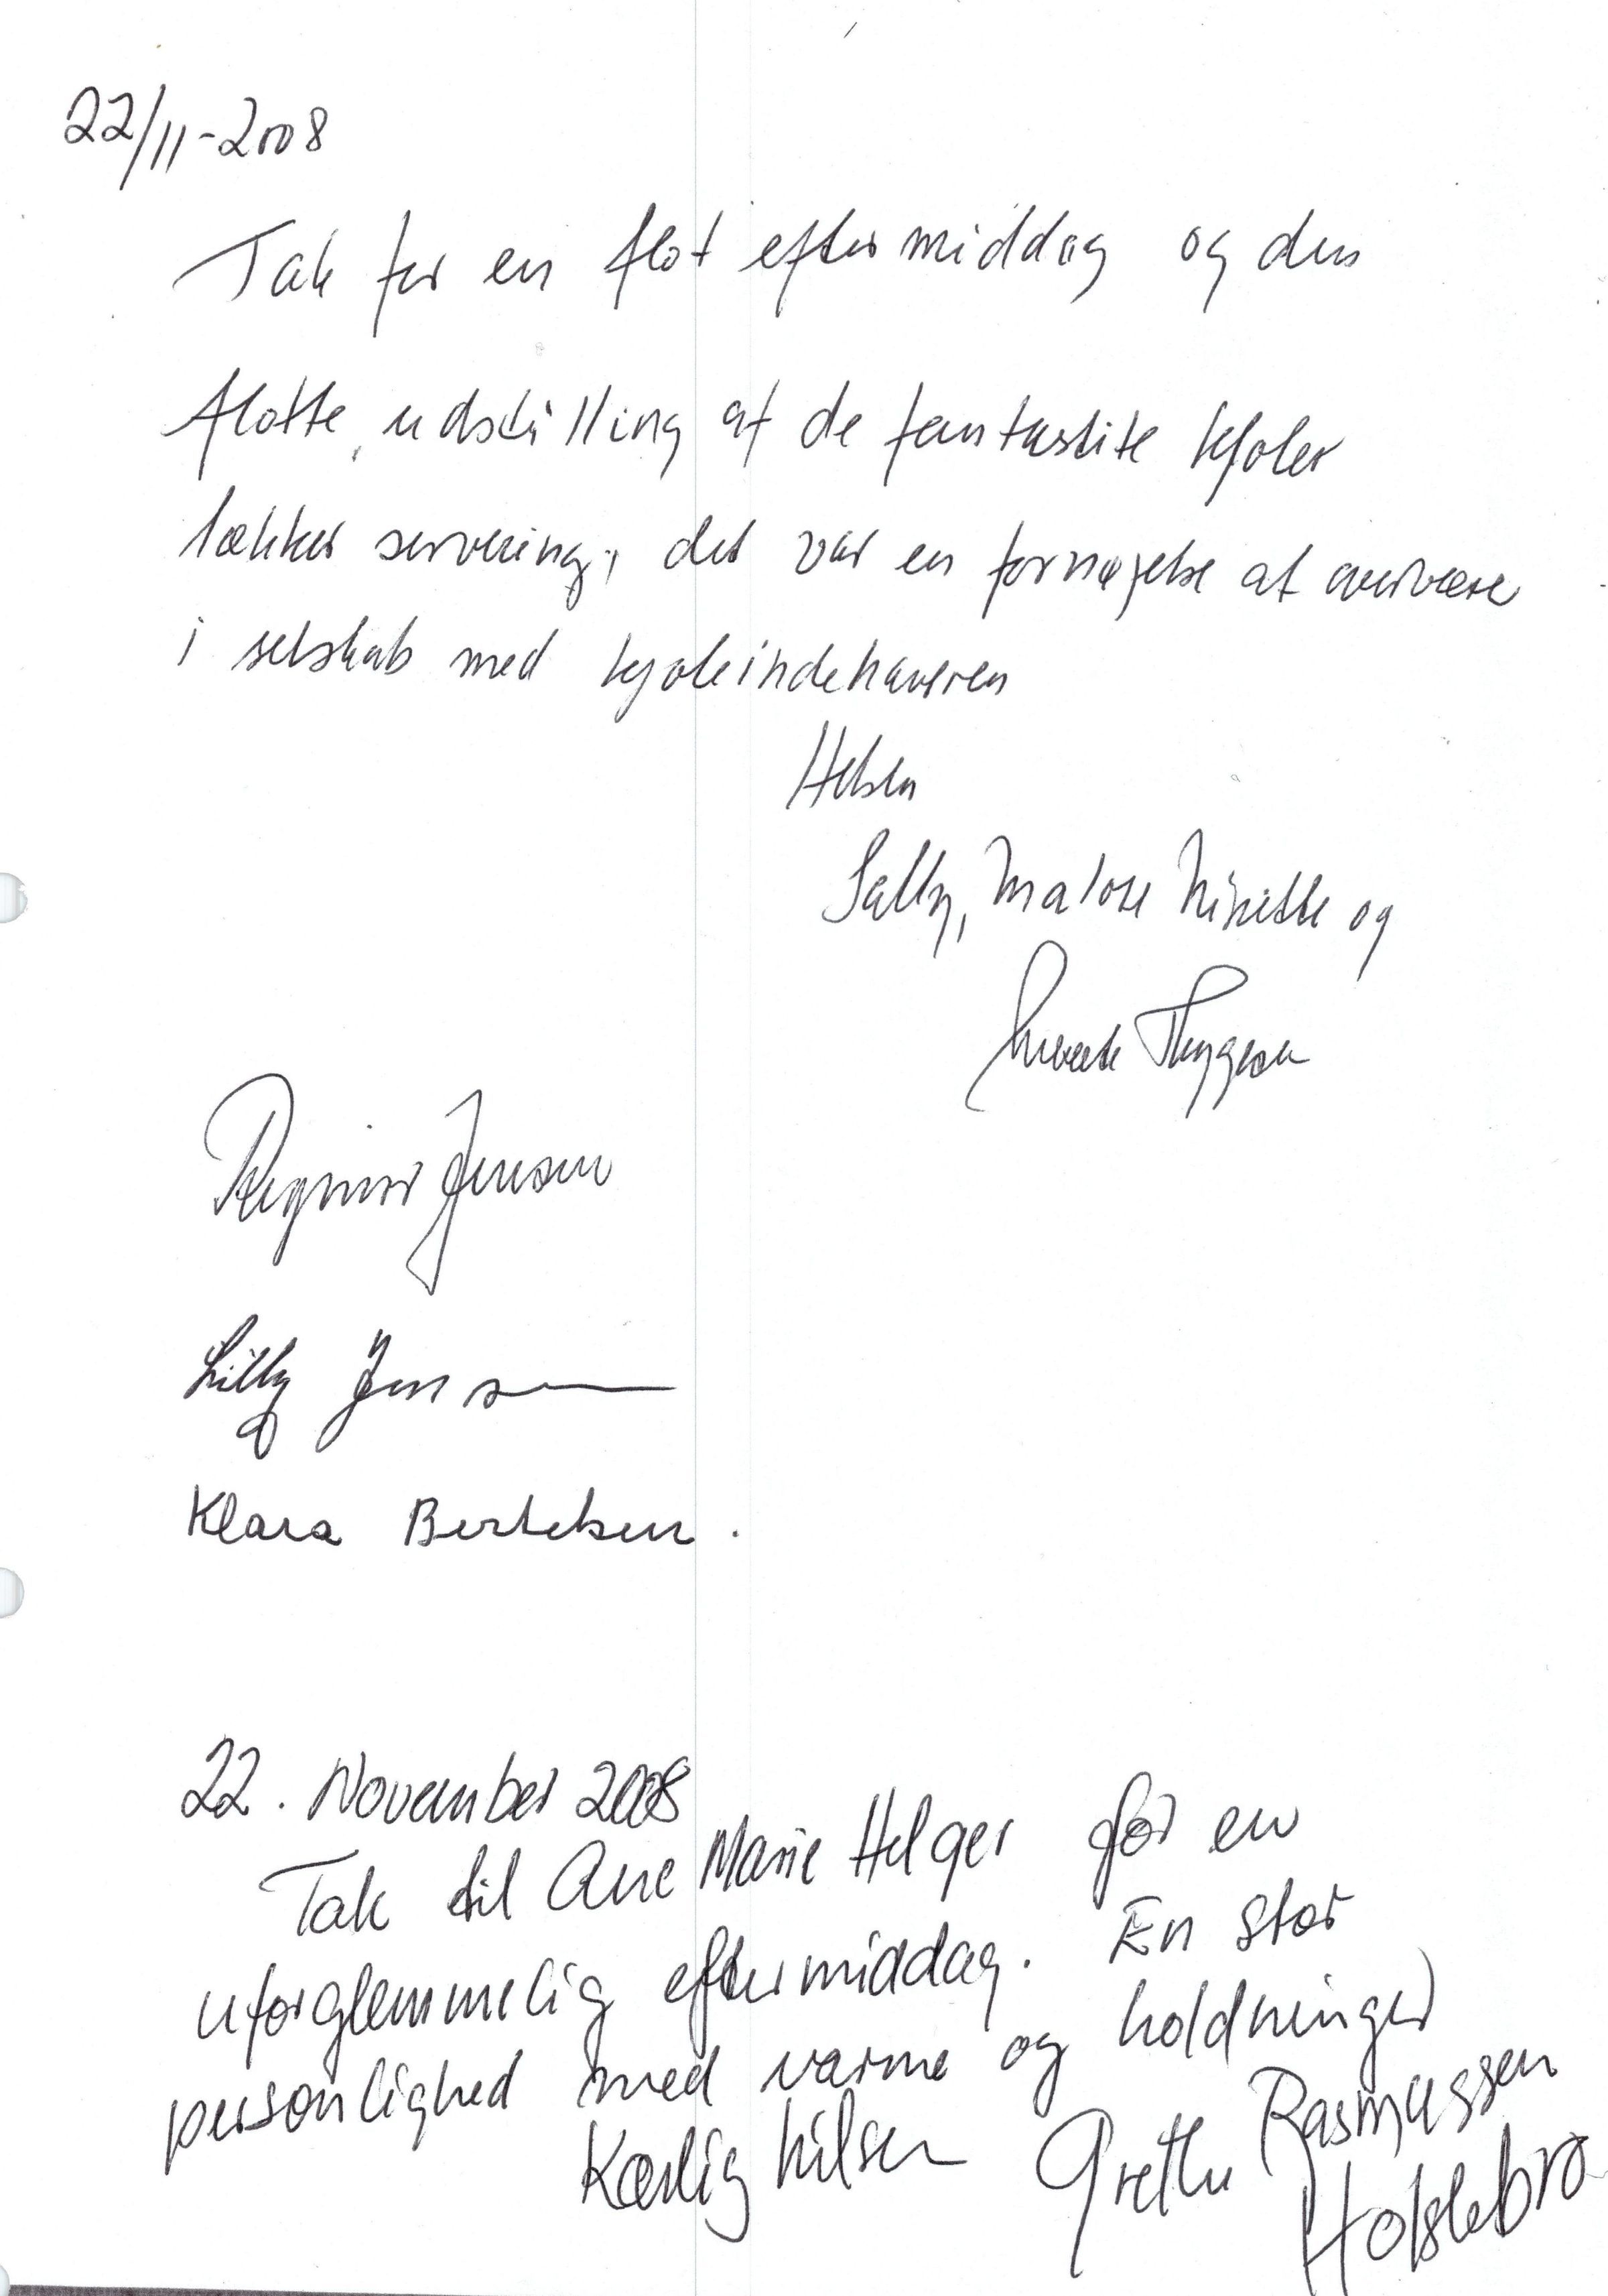 22/11-2008
Tak for en flot eftermiddag og den
flotte udstilling af de fantastike kjoler
lækker servering, det var en fornøjelse at overvære
i selskab med kjoleindehaveren
Hilsen
Sally, Malose Ninette og
Thygesen
Jensen
Lilly Jensen
Klara Bertelsen.
22. November 2008
Tak til Ane Marie Helger for en
uforglemmelig eftermiddag. En stor
personlighed med varme og holdninger
Kærlig hilsen Grethe Rasmussen
Holstebro